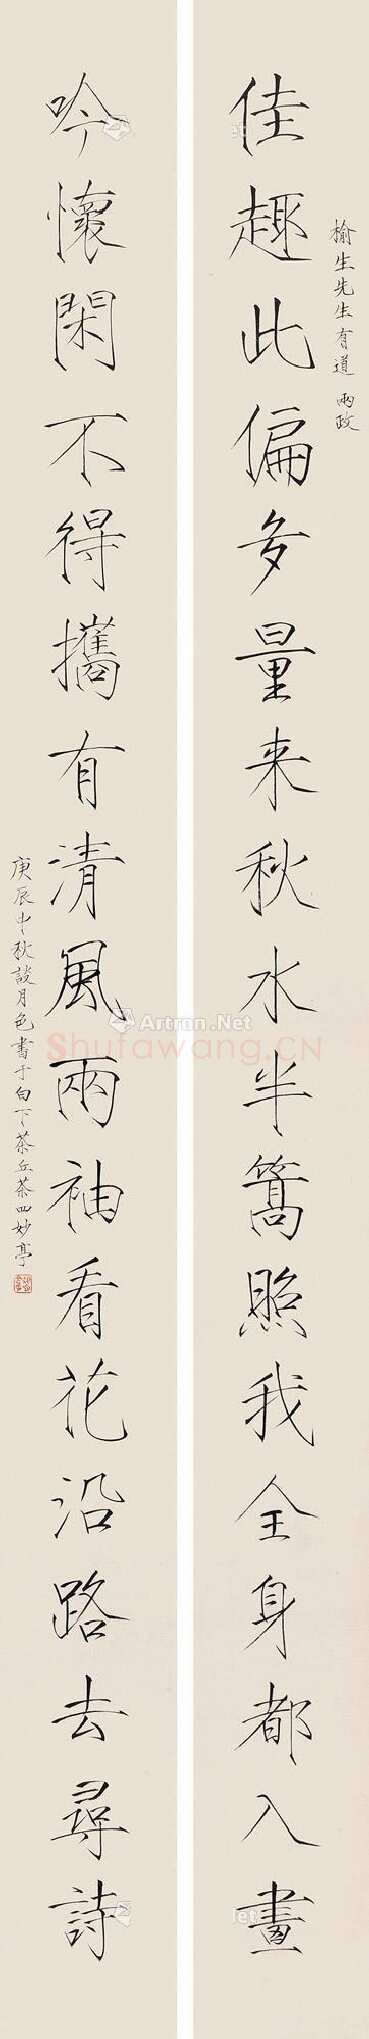 榆生先生有道 兩政
佳趣此偏多量来秋水半篙照我全身都入畫
吟懷閑不得攜有清風兩袖看花沿路去尋詩
庚辰中秋談月色書于白下茶丘茶四妙亭
Artron.Net
Shufawang.CN